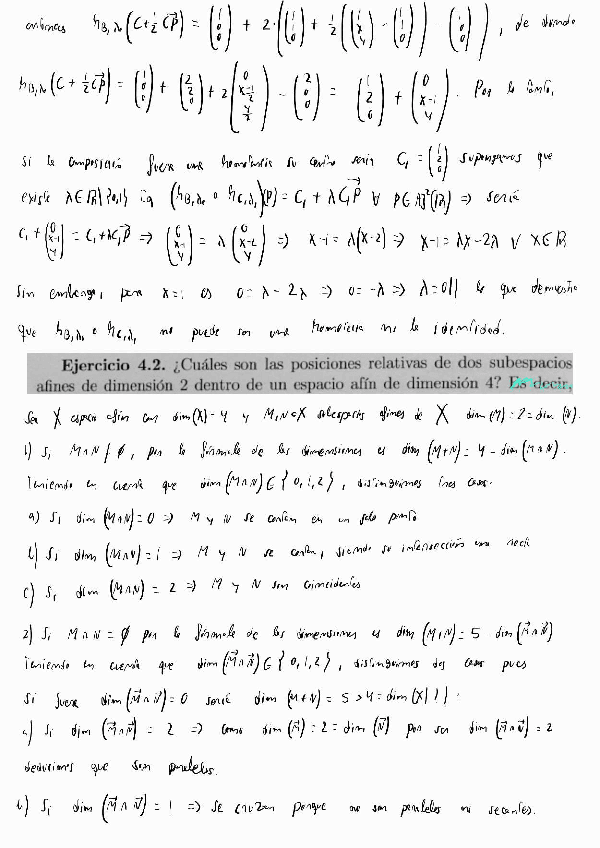 entonces h_{B,λ₀}(C+½CP⃗) = (1 1 0) + 2·((1 1 0) + ½((1 x y) − (1 1 0)) − (1 0 0)), de donde
h_{B,λ₀}(C + ½CP⃗) = (1 0 0) + (2 2 0) + 2(0 (x-1)/2 y/2) − (2 0 0) = (1 2 0) + (0 x-1 y). Por lo tanto,
si la composición fuera una homotecia su centro sería C₁ = (1 2 0) supongamos que
existe λ∈ℝ\{0,1} tq (h_{B,λ₀} ∘ h_{C,λ₁})(P) = C₁ + λC₁P⃗ ∀ P∈A²(ℝ) => sería
C₁ + (0 x-1 y) = C₁+λC₁P⃗ => (0 x-1 y) = λ(0 x-2 y) => x-1 = λ(x-2) => x-1 = λx-2λ ∀ x∈ℝ
Sin embargo, para x=1 es 0=λ-2λ => 0=-λ => λ=0!! lo que demuestra
que h_{B,λ₀} ∘ h_{C,λ₁} no puede ser una homotecia ni la identidad.
Ejercicio 4.2. ¿Cuáles son las posiciones relativas de dos subespacios
afines de dimensión 2 dentro de un espacio afín de dimensión 4? Es decir,
Sea X espacio afín con dim(X)=4 y M,N⊂X subespacios afines de X dim(M)=2=dim(N).
1) Si M∩N≠∅, por la fórmula de las dimensiones es dim(M+N)=4-dim(M∩N).
Teniendo en cuenta que dim(M∩N)∈{0,1,2}, distinguimos tres casos:
a) Si dim(M∩N)=0 => M y N se cortan en un solo punto
b) Si dim(M∩N)=1 => M y N se cortan, siendo su intersección una recta
c) Si dim(M∩N)=2 => M y N son coincidentes
2) Si M∩N=∅ por la fórmula de las dimensiones es dim(M+N)=5 dim(M⃗∩N⃗)
Teniendo en cuenta que dim(M⃗∩N⃗)∈{0,1,2}, distinguimos dos casos pues
si fuera dim(M⃗∩N⃗)=0 sería dim(M+N)=5>4=dim(X)!!.
a) Si dim(M⃗∩N⃗)=2 => como dim(M⃗)=2=dim(N⃗) por ser dim(M⃗∩N⃗)=2
deducimos que son paralelos.
b) Si dim(M⃗∩N⃗)=1 => Se cruzan porque no son paralelos ni secantes.